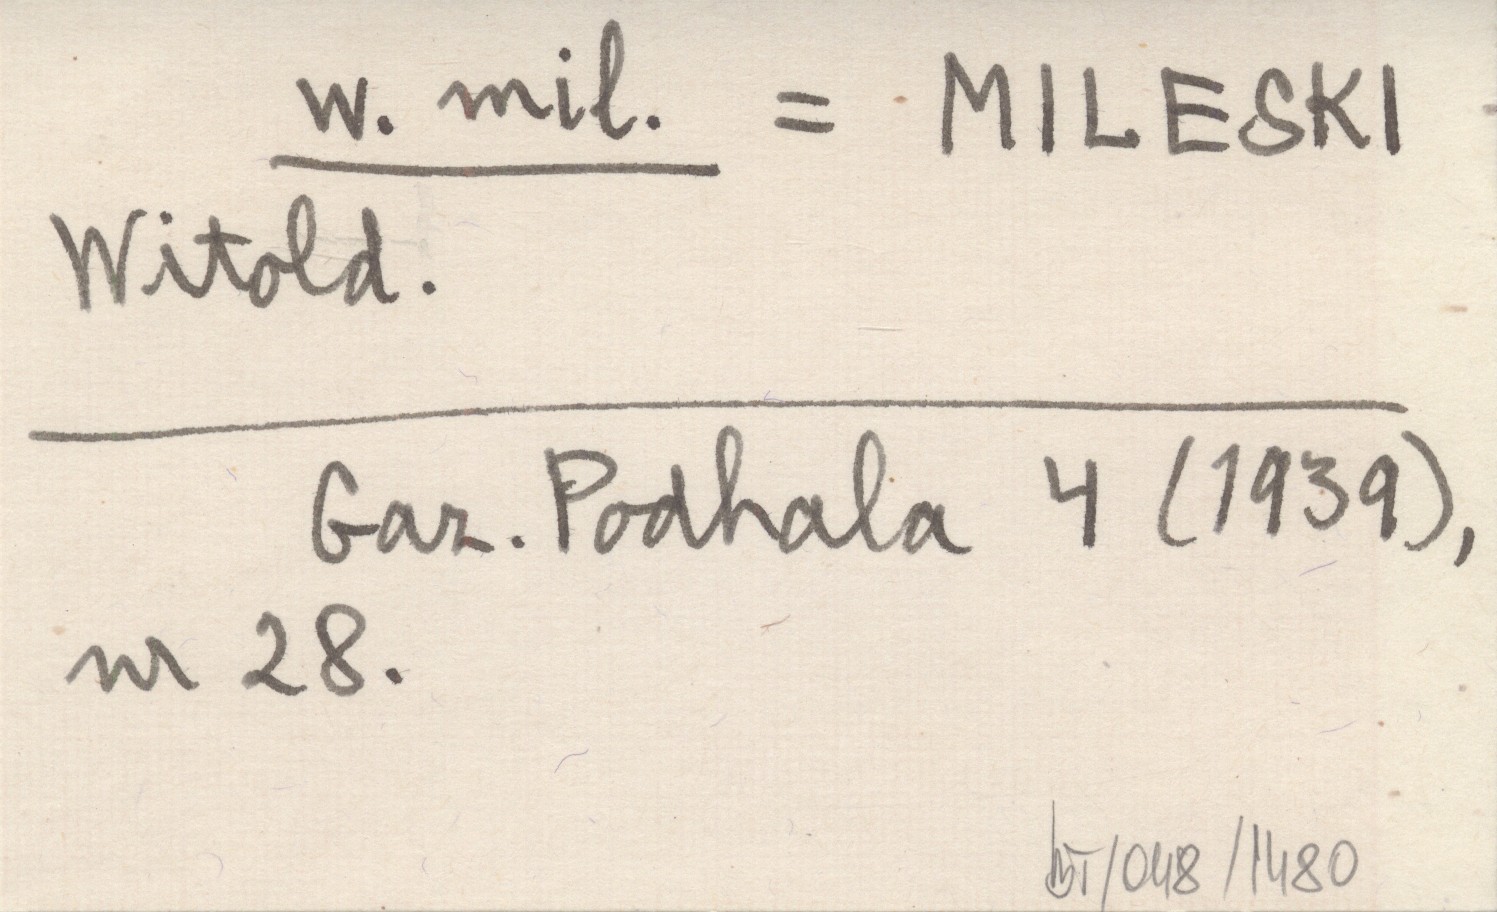 w. mil. = MILESKI
Witold.
Gaz. Podhala 4 (1939),
nr 28.
/048/1480